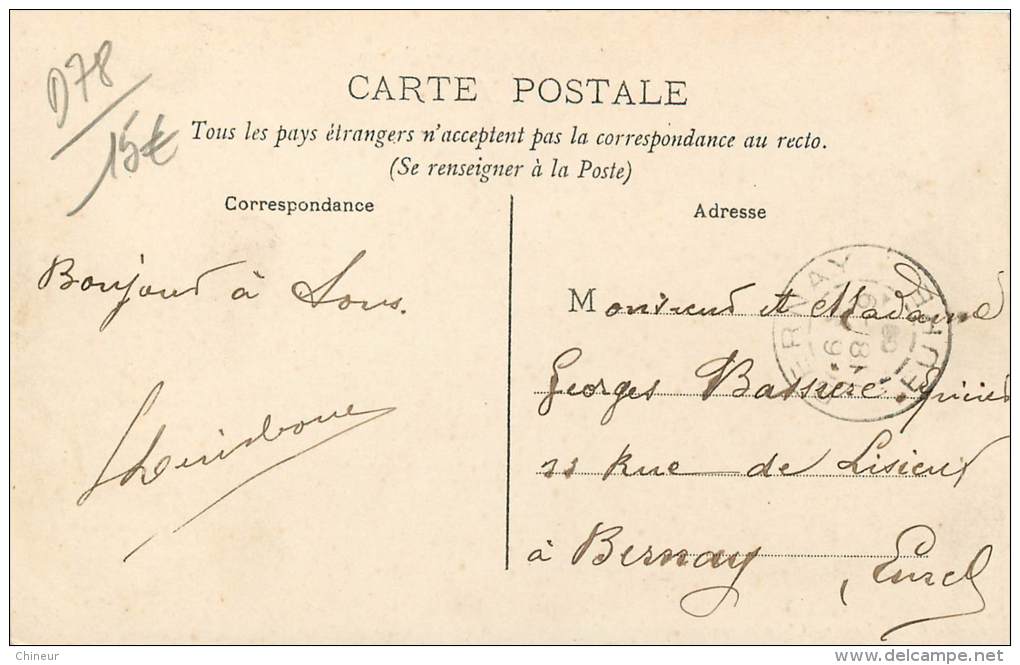 D78
15€
CARTE POSTALE
Tous les pays étrangers n'acceptent pas la correspondance au recto.
(Se renseigner à la Poste)
Correspondance
Adresse
Bonjour à Tous.
Monsieur et Madame
Georges Bassere
11 Rue de Lisieux
à Bernay
Eure
BERNAY
EURE
Chineur
delcampe.net